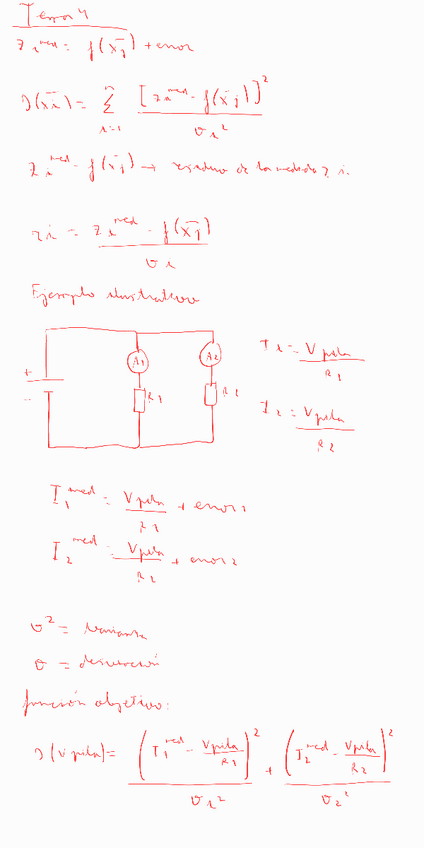 Tema 4
z_i^med = f(x_j) + error
J(x̄_i) = Σ_{i=1}^{n} [z_i^med - f(x_j)]² / σ_i²
z_i^med - f(x_j) → residuo de la medida z i.
r_i = z_i^med - f(x_j) / σ_i
Ejemplo ilustrativo
+ - A1 R1 A2 R2
I_1 = V pila / R_1
I_2 = V pila / R_2
I_1^med = V pila / R_1 + error_1
I_2^med = V pila / R_2 + error_2
σ² = varianza
σ = desviación
función objetivo:
J(V pila) = (I_1^med - V pila / R_1)² / σ_1² + (I_2^med - V pila / R_2)² / σ_2²